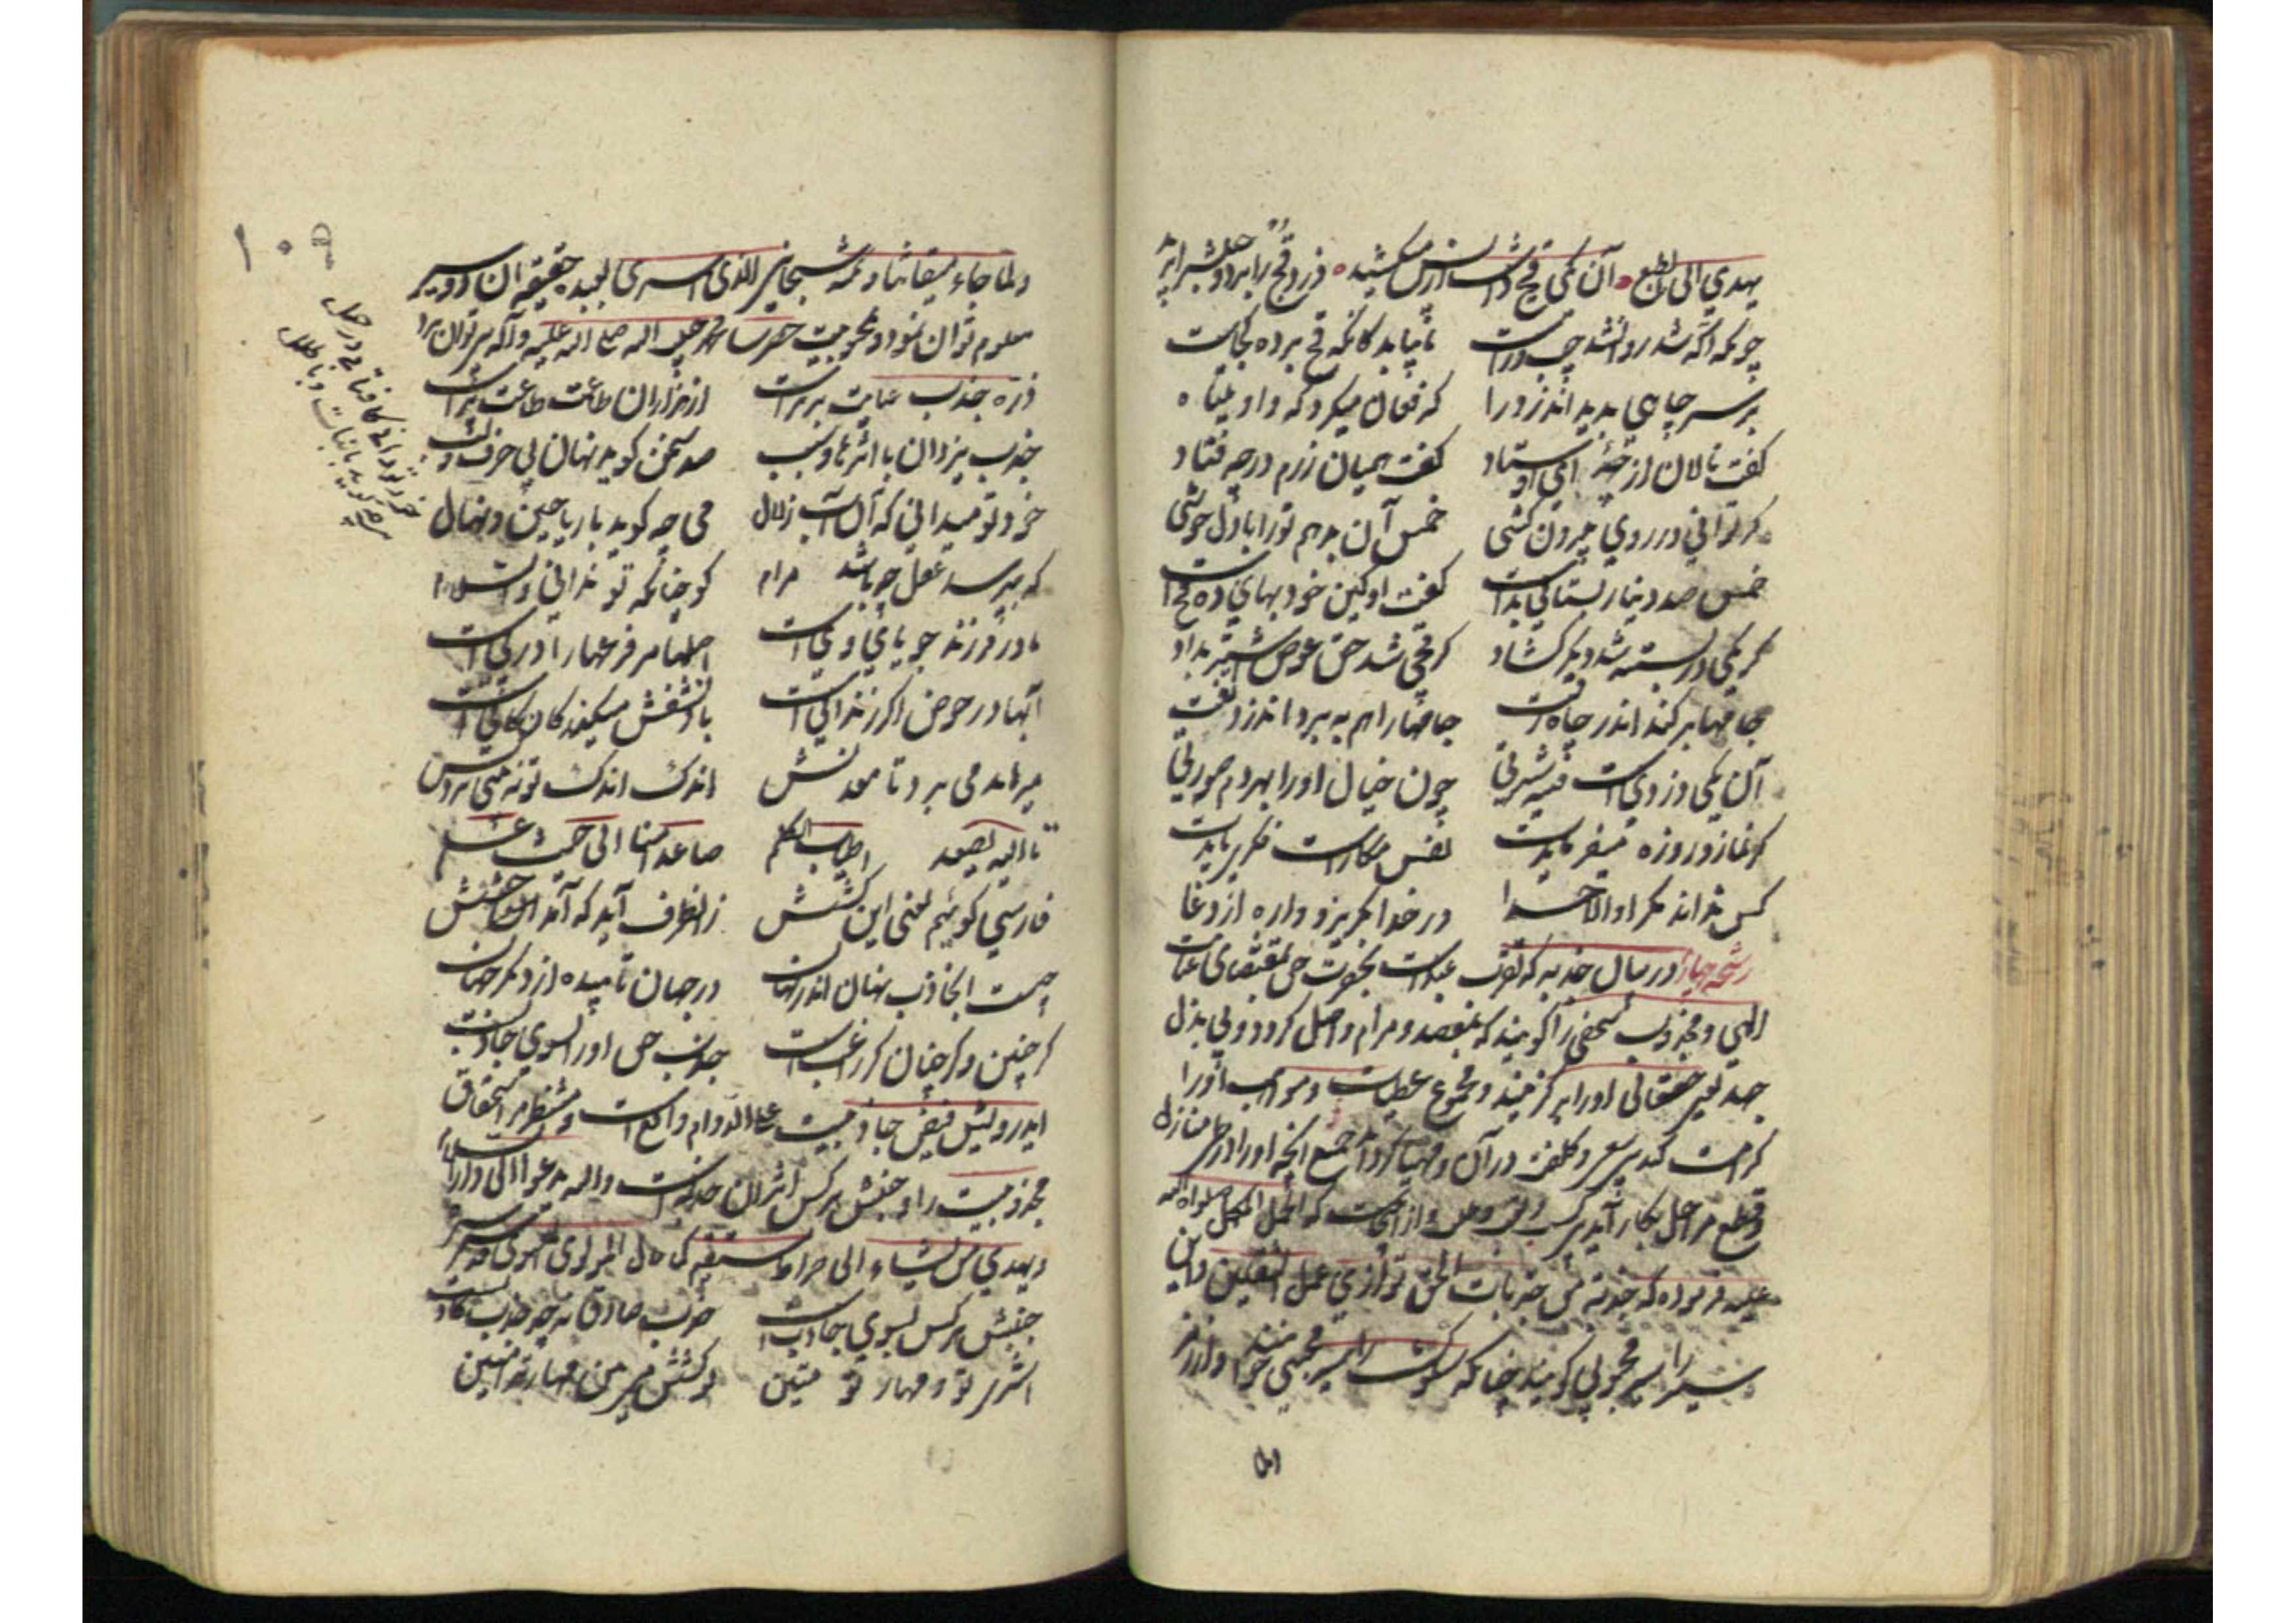 یهدی الی الطبع آن یکی قچ داشت از پس میکشید دزد قچ را برد و حبلش را برید
چونکه آگه شد دوان شد چپ و راست تا بیابد کانکه قچ برده کجاست
بر سر چاهی بدید آن دزد را که فغان میکرد که واویلتاه
گفت نالان از چه ای اوستاد گفت همیان زرم در چه فتاد
گر توانی در روی بیرون کشی خمس آن بدهم تو را با دل خوشی
خمس صد دینار بستانی بدست گفت او کین خود بهای ده قچ است
گر یکی در بسته شد ده در گشاد گر قچی شد حق عوض اشتر بداد
جامها بر کند اندر چاه رفت جامها را هم ببرد آن دزد تفت
آن یکی دزدیست فتنه سیرتی چون خیال او را بهر دم صورتی
گر نماز و روزه میفرمایدت نفس مکارست فکری بایدت
کس نداند مکر او الا خدا در خدا بگریز و واره از دغا
رشحه چهار در بیان جذبه که تقرب عبدست بحضرت حق بمقتضای عنایت
الهی و مجذوب شخصی را گویند که بمقصد و مرام واصل گردد و بی بذل
جهد تعب حقتعالی او را برگزیند و مجموع عطیات و مواهب او را
کرامت کند بی سعی و کلفت در آن و مهیا گرداند جمیع آنچه او را در طی منازل
و قطع مراحل بکار آید و از اینجاست که اکمل الکمل صلواة الله
علیه فرموده که جذبة من جذبات الحق توازی عمل الثقلین و این
سیر را سیر محبوبی گویند چنانکه سلوک را سیر محبی خوانند و از رمز
ولما جاء میقاتنا و نکته سبحان الذی اسری بعبده حقیقة آن دو سیر
معلوم توان نمود و محبوبیت حضرت محمد حبیب اله صلی اله علیه و آله پی توان برد
ذره جذب عنایت برترست از هزاران طاعت طاعت پرست
جذب یزدان با اثرها و سبب صد سخن گوید نهان بی حرف و لب
خود تو میدانی که آن آب زلال می چه گوید با ریاحین و نهال
که بپرسد عقل چون باشد مرام گو چنانکه تو ندانی والسلام
مادر فرزند جویای ویست اصلها مر فرعها را در پی است
آبها در حوض اگر زندانی است باد نشفش میکند کارکانی است
میرهاند می برد تا معدنش اندک اندک تو نه بینی بردنش
تا الیه یصعد اطیاب الکلم صاعدا منا الی حیث علم
فارسی گوئیم یعنی این کشش زانطرف آید که آمد آن چشش
چیست این جاذب نهان اندر نهان در جهان تابیده از دیگر جهان
گر چنین و گر چنان گر راغب است جذب حق او را بسوی جاذبست
ایدرویش فیض جاذبیت علی الدوام واقع است و منتظر استحقاق
مجذوبیت را و جنبش هر کس اثر آن جذبه است واله یدعوا الی دار السلام
ویهدی من یشاء الی صراط مستقیم کما قال المولوی المعنوی قدس سره
جنبش هر کس بسوی جاذب است جذب صادق نه چو جذب کاذبست
اشتری تو و مهار تو متین تو کشش می بین مهارت را مبین
۱۰۵
خود تو دانی کافتابی در حمل
می چه گوید با نبات و با دقل